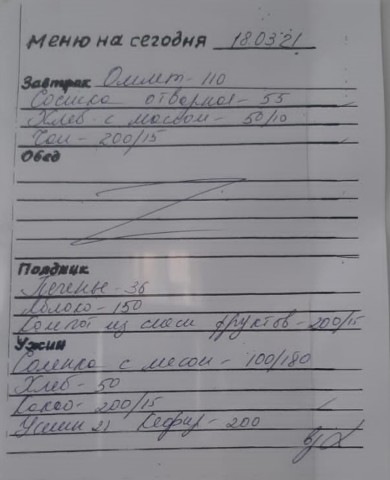 Меню на сегодня 18.03.21
Завтрак Омлет - 110
Сосиска отварная - 55
Хлеб с маслом - 50/10
Чай - 200/15
Обед
Полдник
Печенье - 36
Яблоко - 150
Компот из смеси фруктов - 200/15
Ужин
Солянка с мясом - 100/180
Хлеб - 50
Какао - 200/15
Ужин 21 Кефир - 200